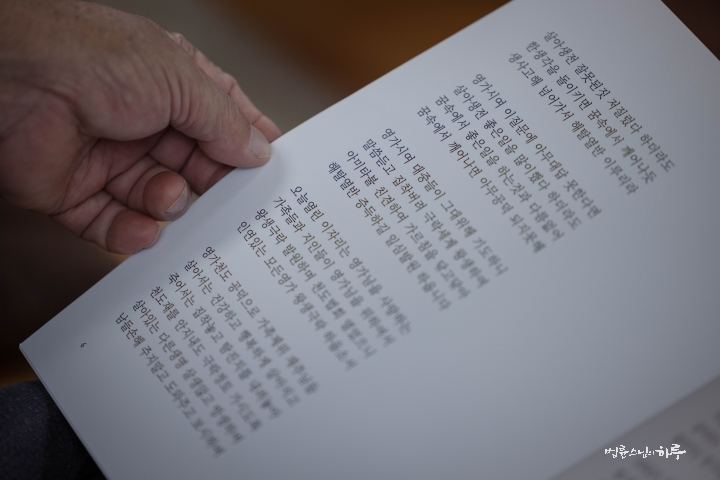 살아생전 잘못된짓 저질렀다 하더라도
한생각을 돌이키면 꿈속에서 깨어나듯
생사고해 넘어가서 해탈열반 이루리라
영가시여 이질문에 아무대답 못한다면
살아생전 좋은일을 많이했다 하더라도
꿈속에서 좋은일을 하는것과 다름없어
꿈속에서 깨어나면 아무공덕 되지못해
영가시여 대중들이 그대위해 기도하니
말씀듣고 집착버려 극락세계 왕생하여
아미타불 친견하여 가르침을 받고닦아
해탈열반 증득하길 일심발원 하옵니다
오늘열린 이자리는 영가님을 사랑하는
가족들과 지인들이 영가님을 위하여서
왕생극락 발원하며 천도법회 열었으니
인연있는 모든영가 왕생극락 하옵소서
영가천도 공덕으로 가족제위 제주님들
살아서는 건강하고 행복하게 살아지고
죽어서는 집착놓고 탐진치를 내려놓아
천도재를 안지내도 극락정토 가시도록
살아있는 다른생명 살생말고 방생하며
남들손해 주지말고 도와주고 보시하며
6
법륜스님의 하루